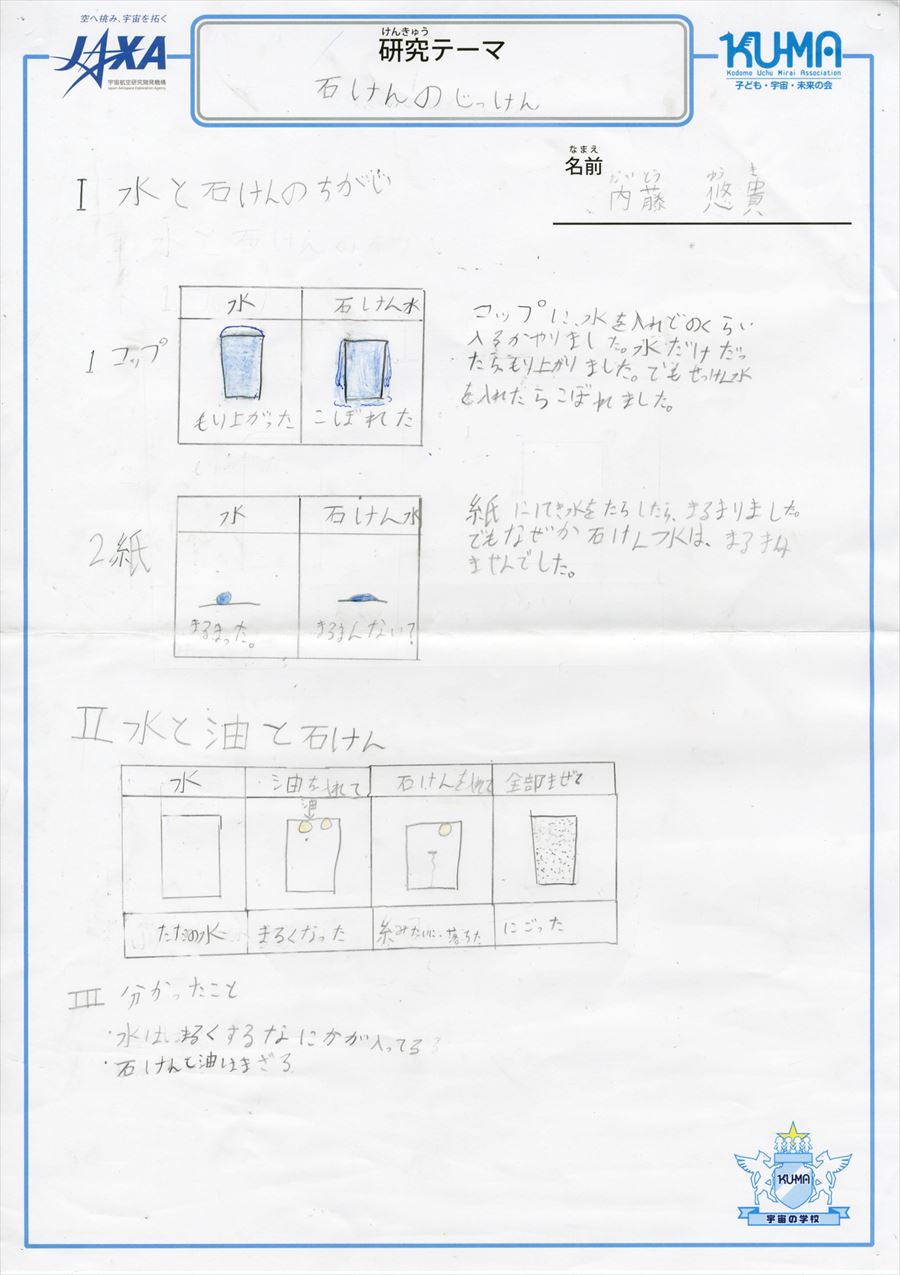 空へ挑み、宇宙を拓く
JAXA
宇宙航空研究開発機構
Japan Aerospace Exploration Agency
けんきゅう
研究テーマ
石けんのじっけん
KU-MA
Kodomo Uchu Mirai Association
子ども・宇宙・未来の会
なまえ
名前
ないとう ゆうき
内藤 悠貴
I 水と石けんのちがい
水 石けん水
1 コップ
もり上がった こぼれた
コップに、水を入れどのくらい
入るかやりました。水だけだっ
たらもり上がりました。でもせっけん水
を入れたらこぼれました。
水 石けん水
2 紙
まるまった。 まるまんない?
紙にてき水をたらしたら、まるまりました。
でもなぜか石けん水は、まるまり
ませんでした。
II 水と油と石けん
水 油を入れて 石けんを入れて 全部まぜて
油
ただの水 まるくなった 糸みたいに落ちた にごった
III 分かったこと
・水は、まるくするなにかが入ってる
・石けんと油はまざる
KU-MA
宇宙の学校